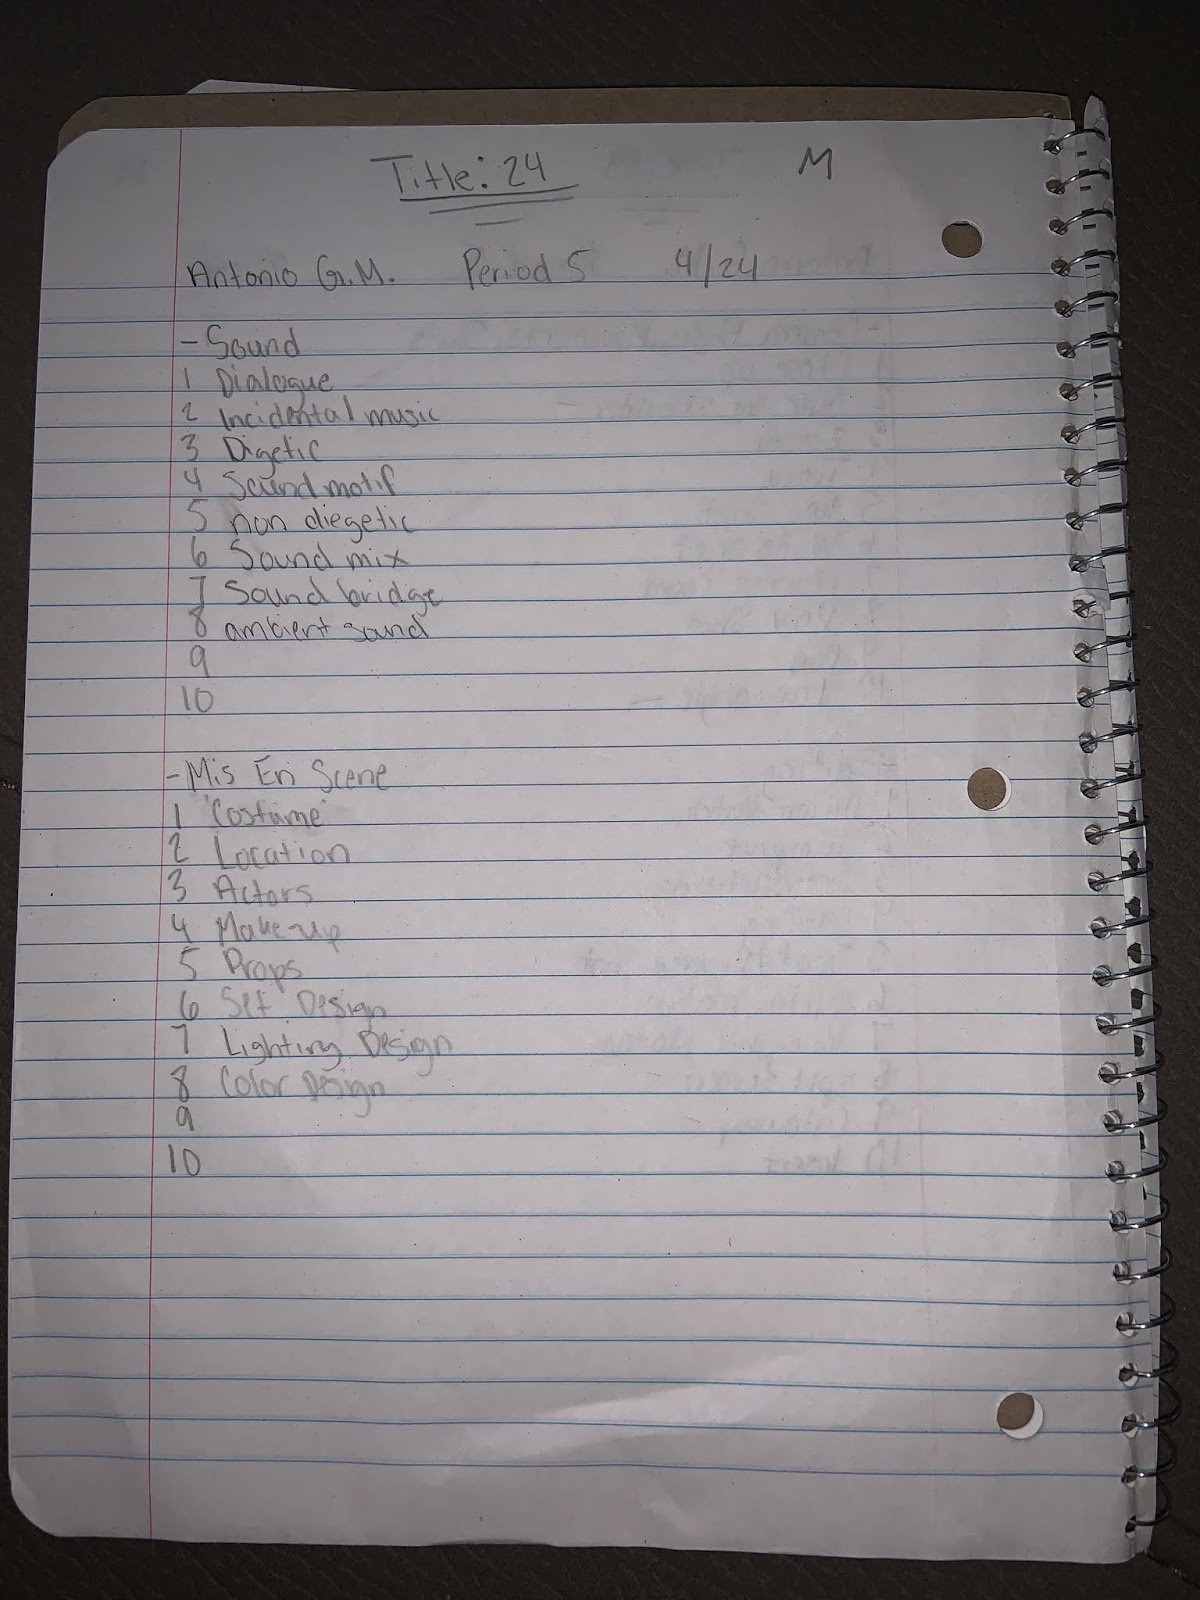 Title: 24 M
Antonio G.M. Period 5 4/24
- Sound
1 Dialogue
2 Incidental music
3 Digetic
4 Sound motif
5 non diegetic
6 Sound mix
7 Sound bridge
8 ambient sound
9
10
- Mis En Scene
1 Costume
2 Location
3 Actors
4 Make-up
5 Props
6 Set Design
7 Lighting Design
8 Color Design
9
10